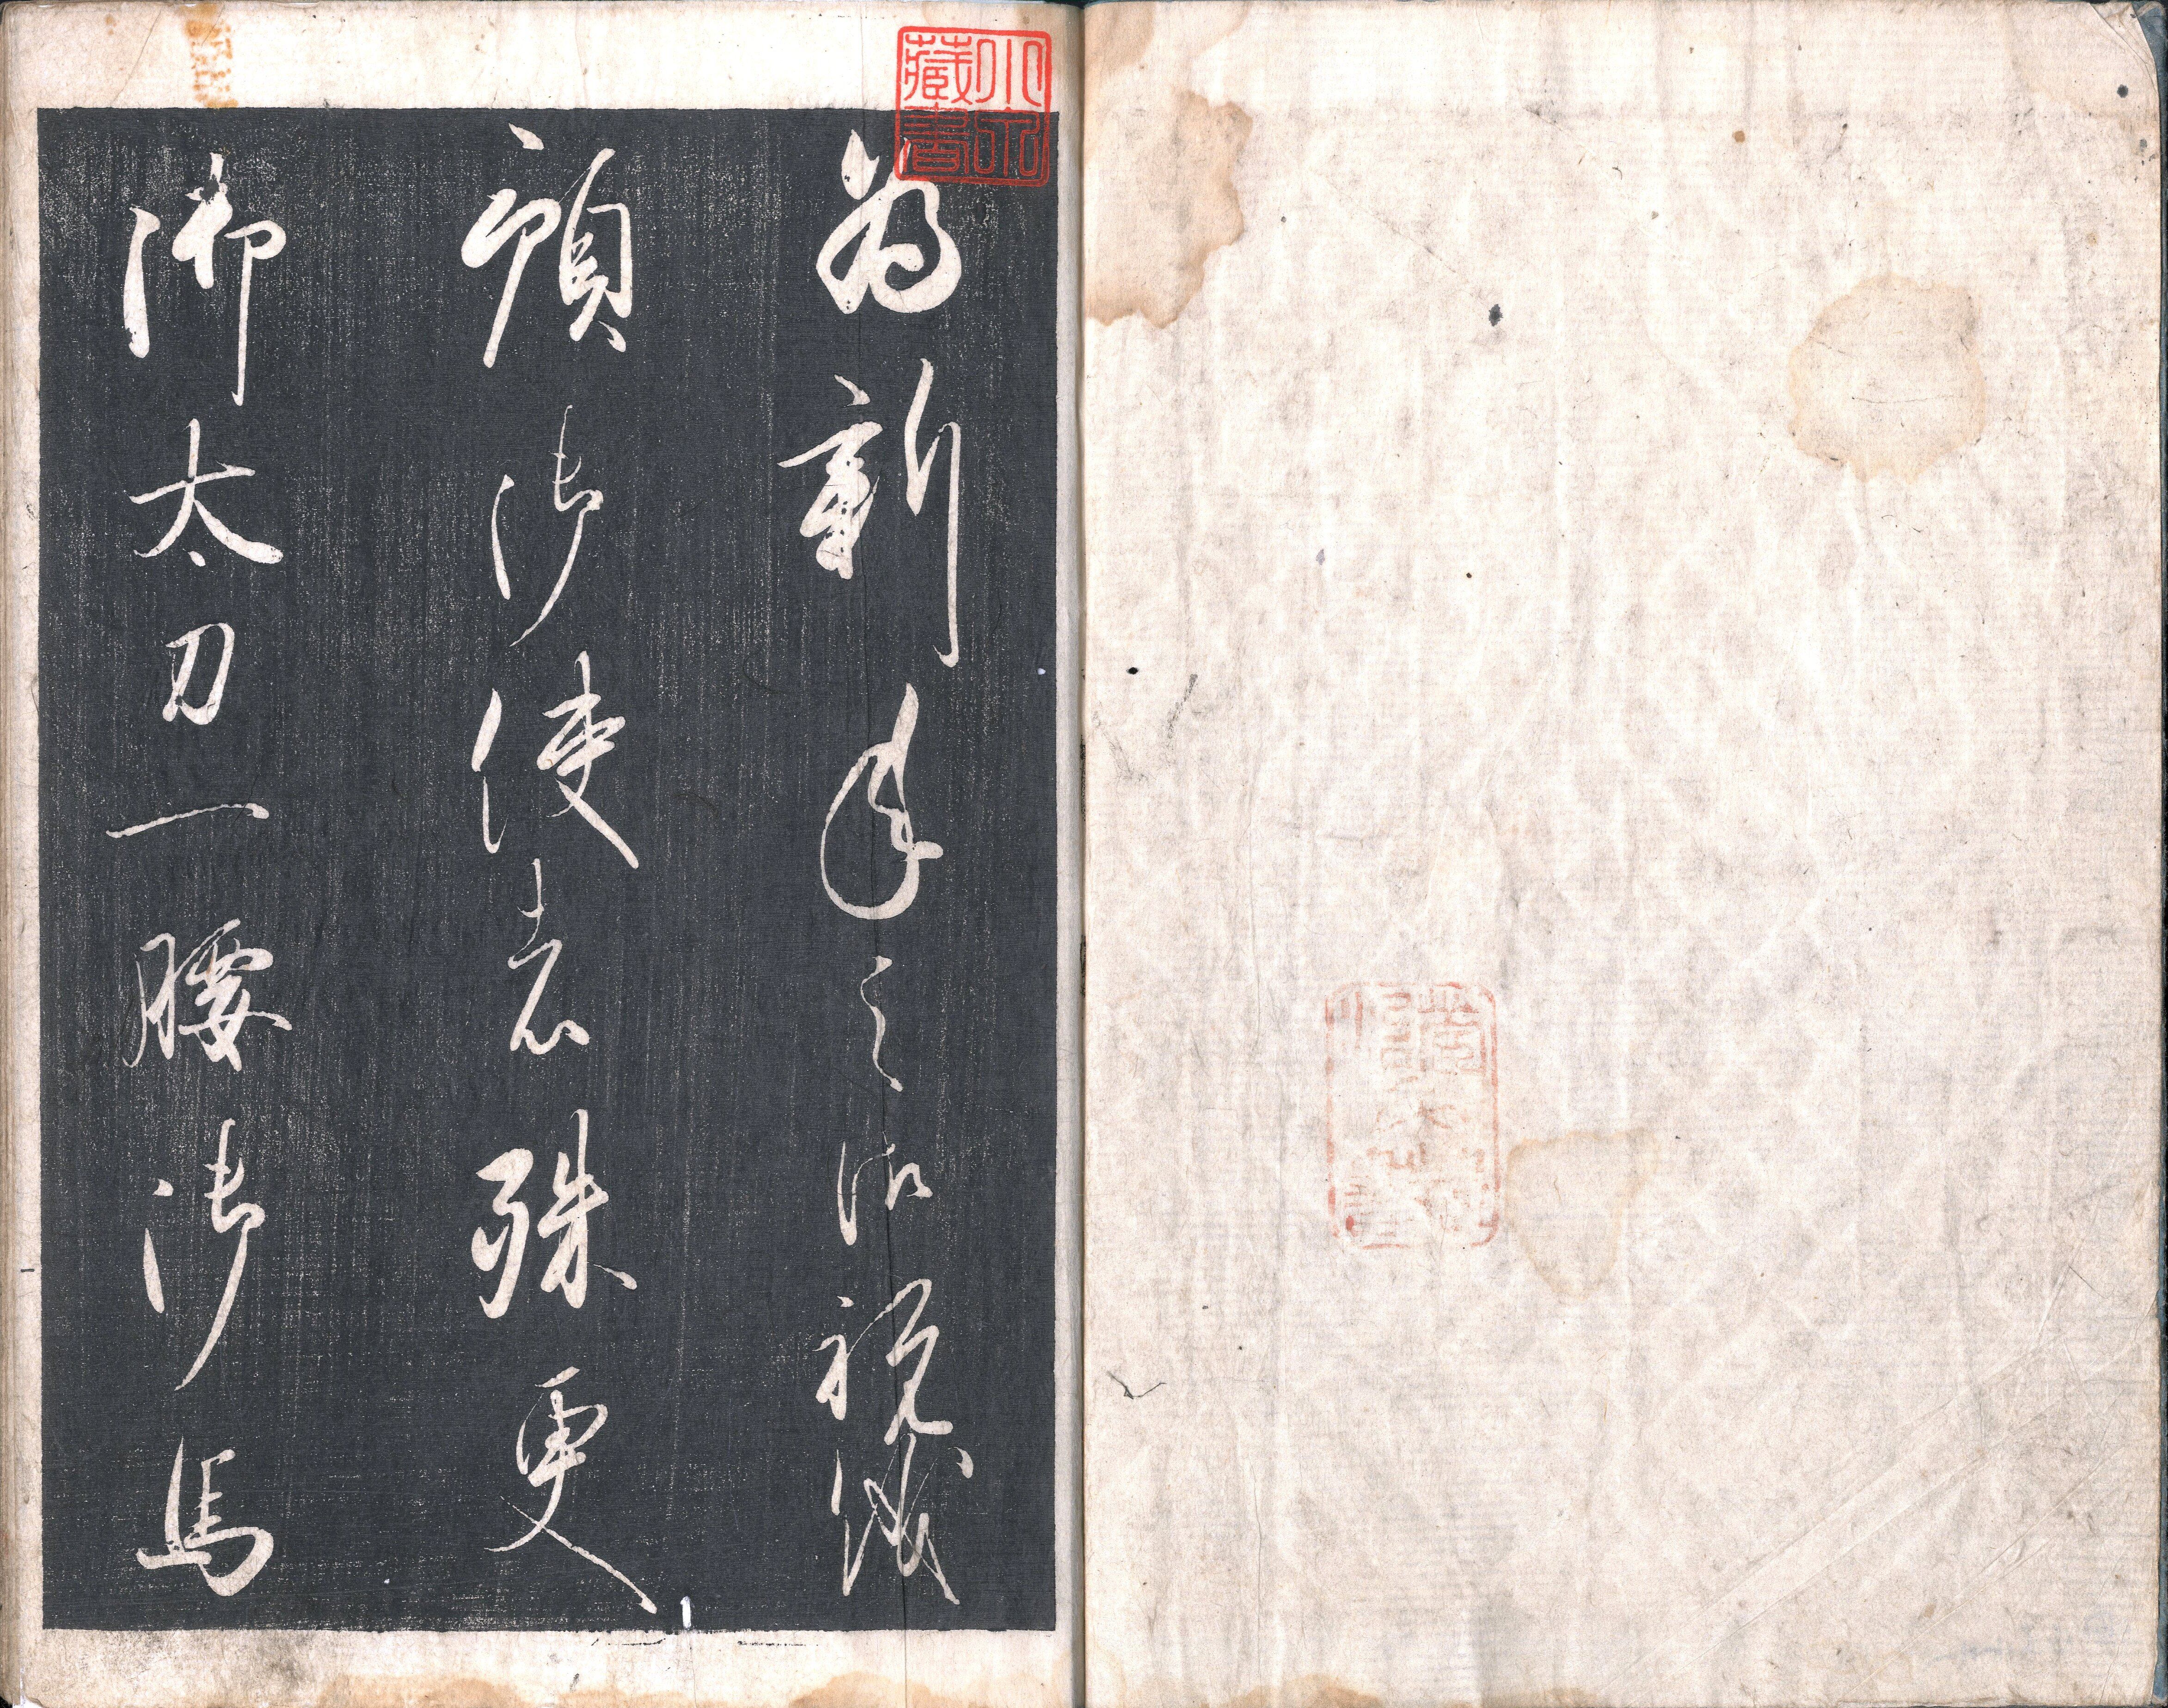 為新年之御祝儀
預御使者殊更
御太刀一腰御馬
藏書